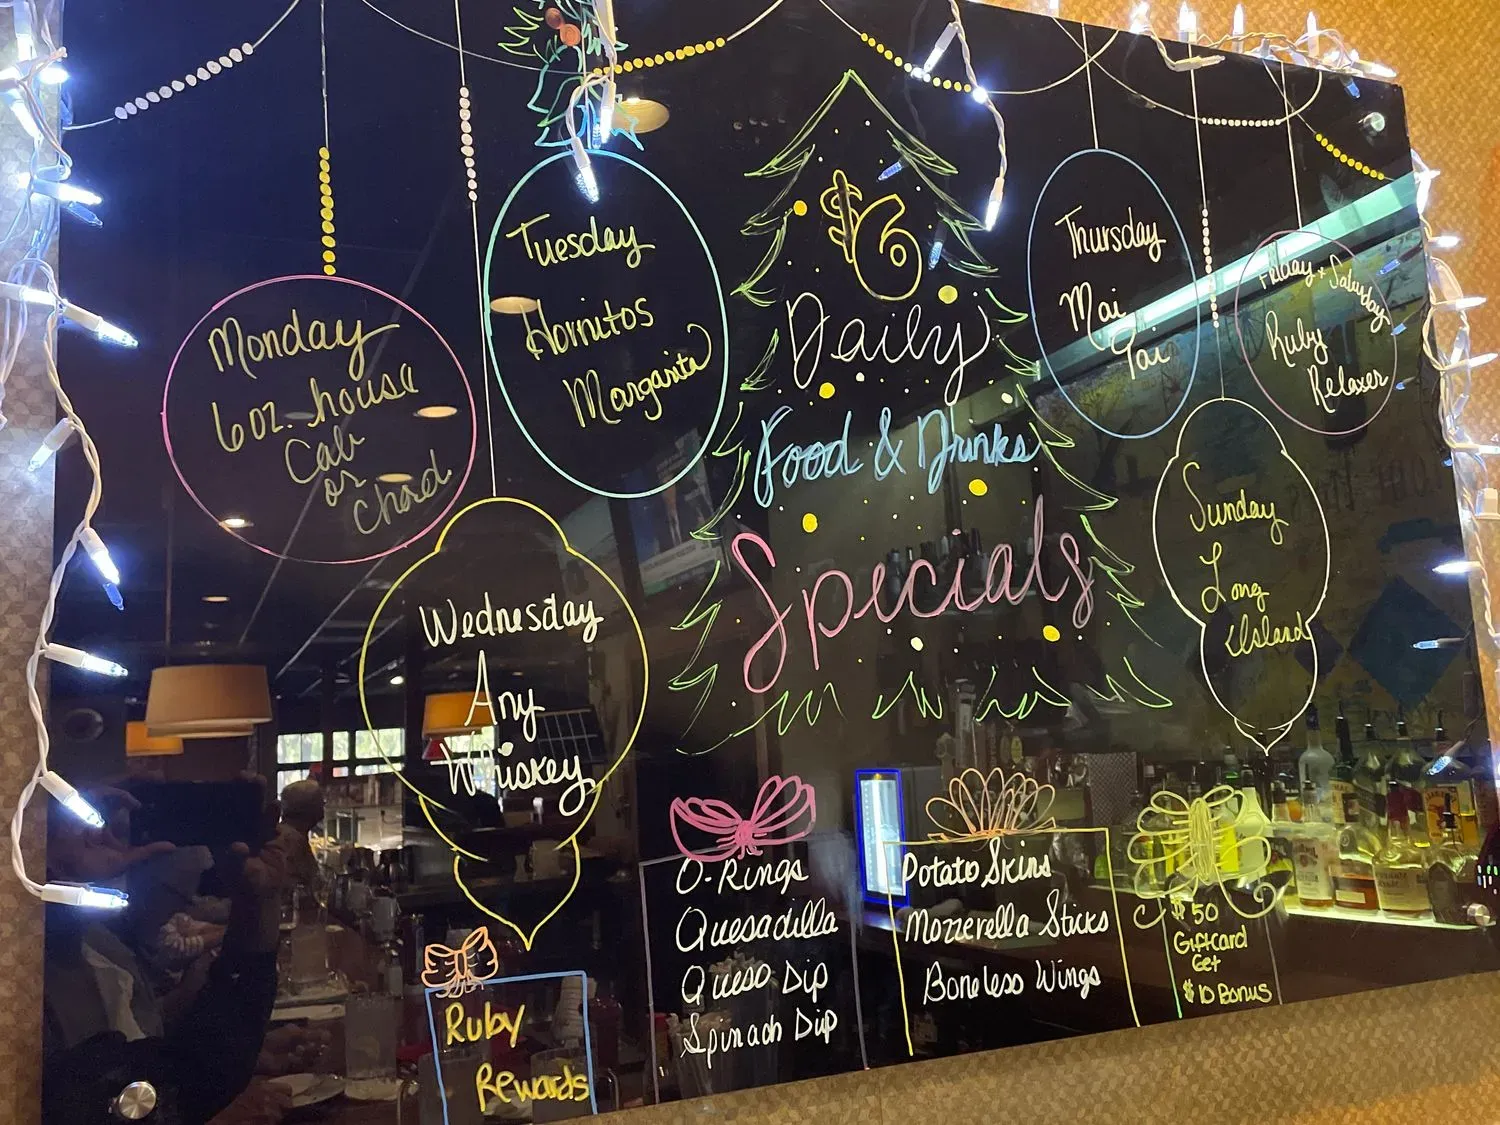 Monday
6 oz. house
Cab
or
Chard
Tuesday
Hornitos
Margarita
Wednesday
Any
Whiskey
$6
Daily
Food & Drinks
Specials
Thursday
Mai
Tai
Friday + Saturday
Ruby
Relaxer
Sunday
Long
Island
Ruby
Rewards
O-Rings
Quesadilla
Queso Dip
Spinach Dip
Potato Skins
Mozzerella Sticks
Boneless Wings
$50
Giftcard
Get
$10 Bonus